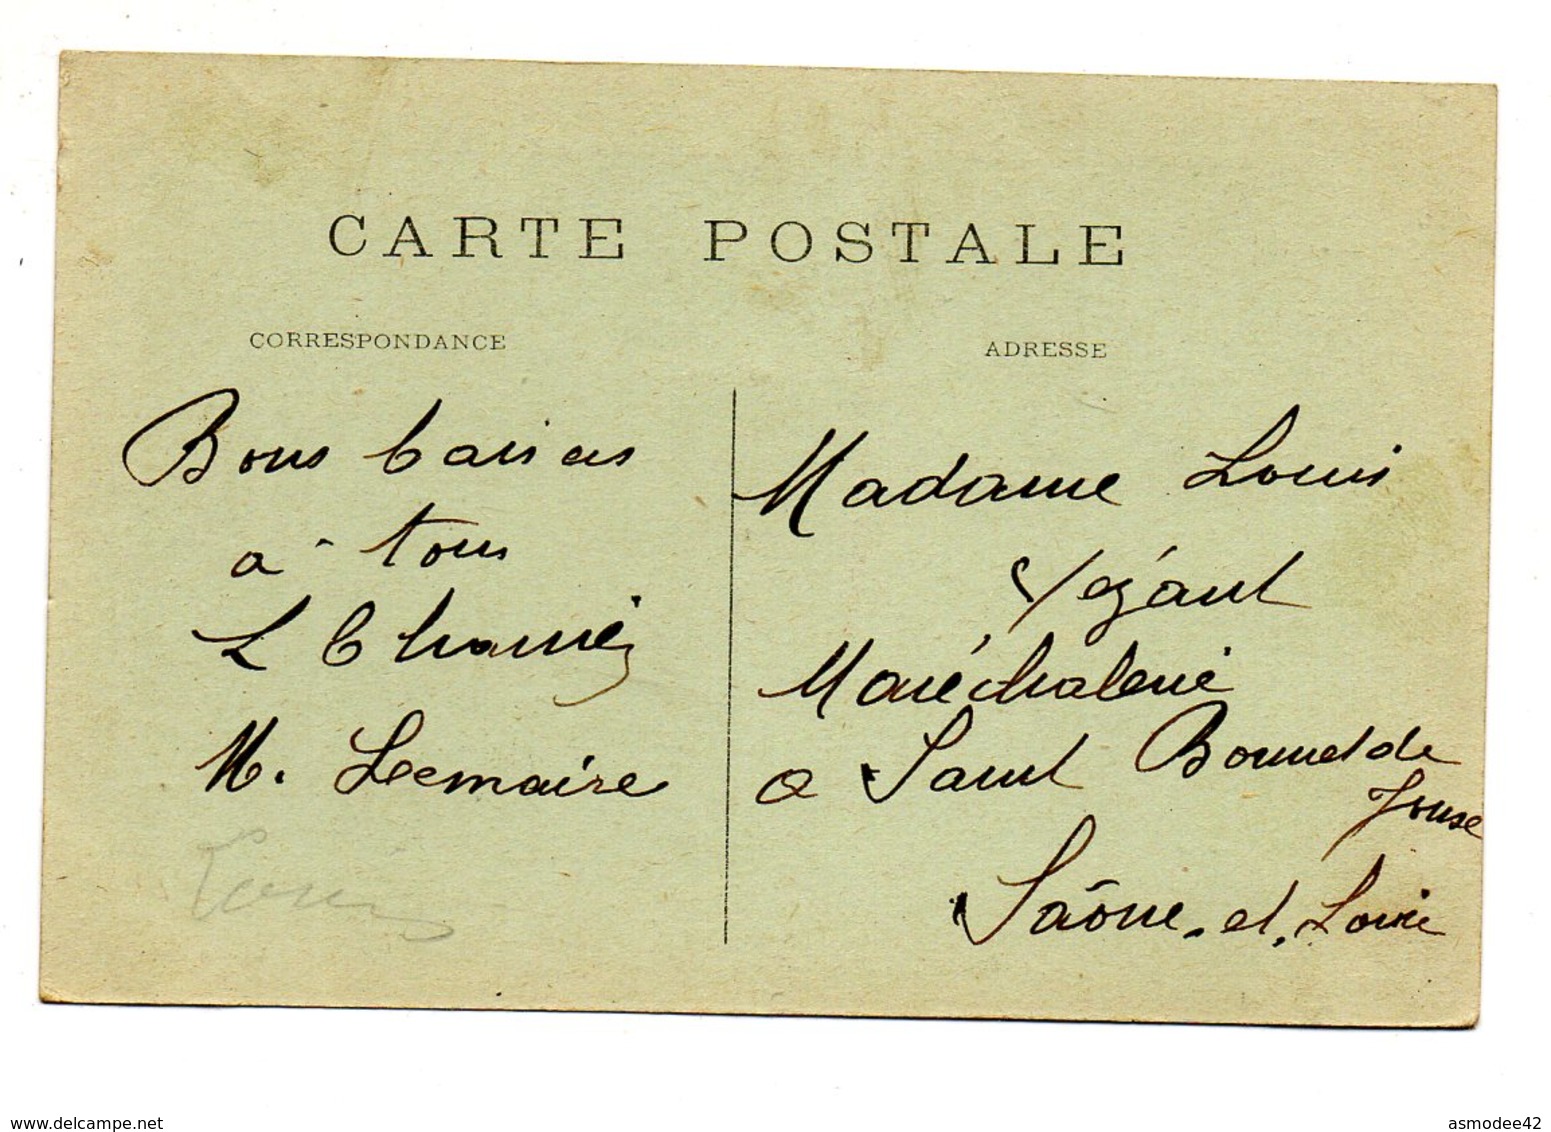 CARTE POSTALE
CORRESPONDANCE
Bons baisers
à tous
L
M. Lemaire
ADRESSE
Madame Louis
Maréchalerie
a Saint Bonnet de
Jouse
Saône-et-Loire
www.delcampe.net
asmodee42